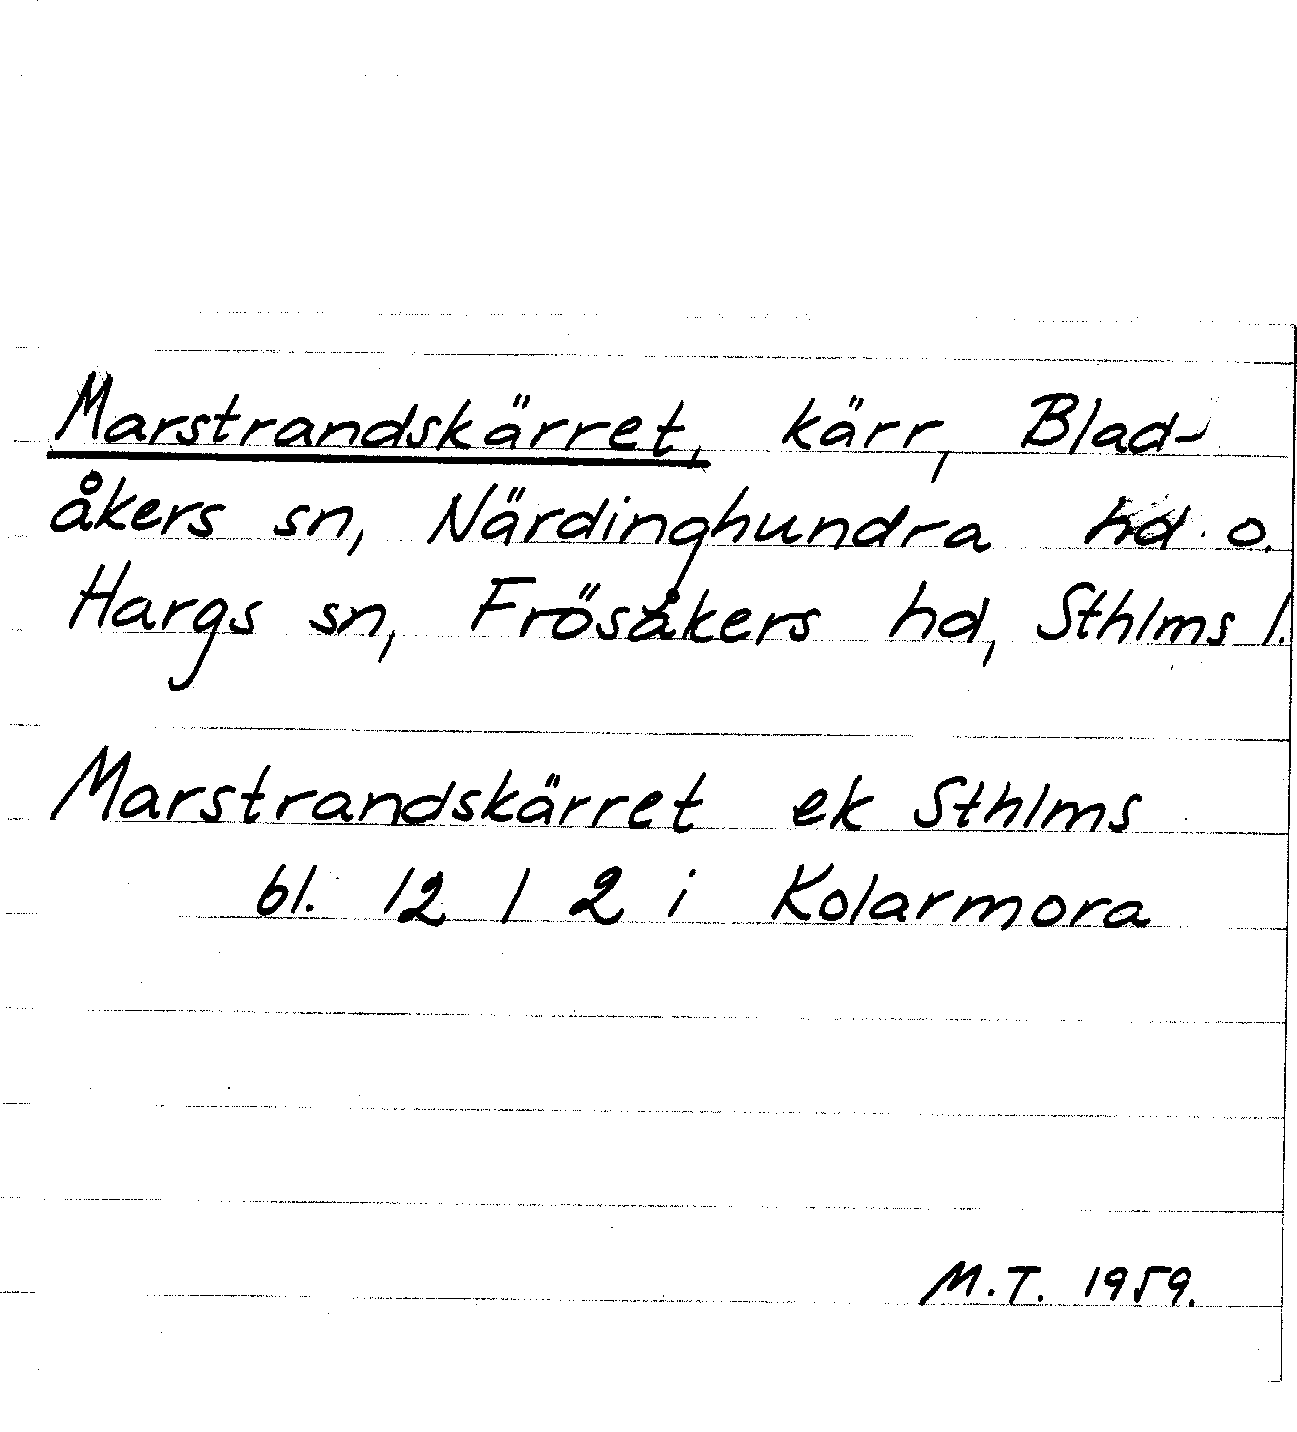 Marstrandskärret, kärr, Blad-
åkers sn, Närdinghundra hd o.
Hargs sn, Frösåkers hd, Sthlms l.
Marstrandskärret ek Sthlms
bl. 12 I 2 i Kolarmora
M.T. 1959.